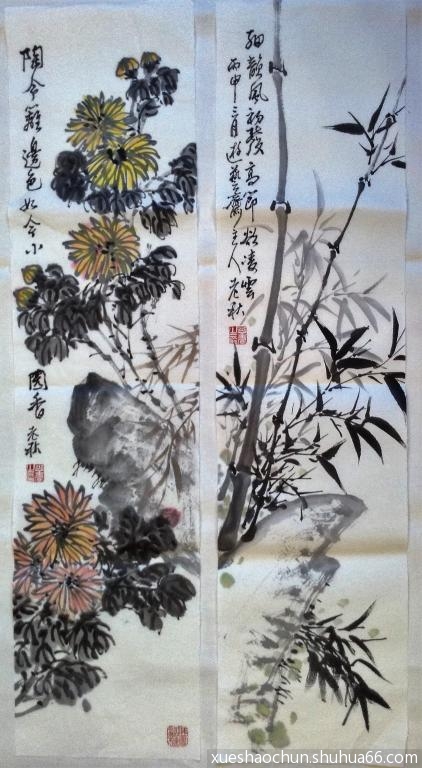 陶令籬邊色如今小
園香 老秋
細韻風初發高節欲凌雲
丙申三月遊藝齋主人老秋
xueshaochun.shuhua66.com